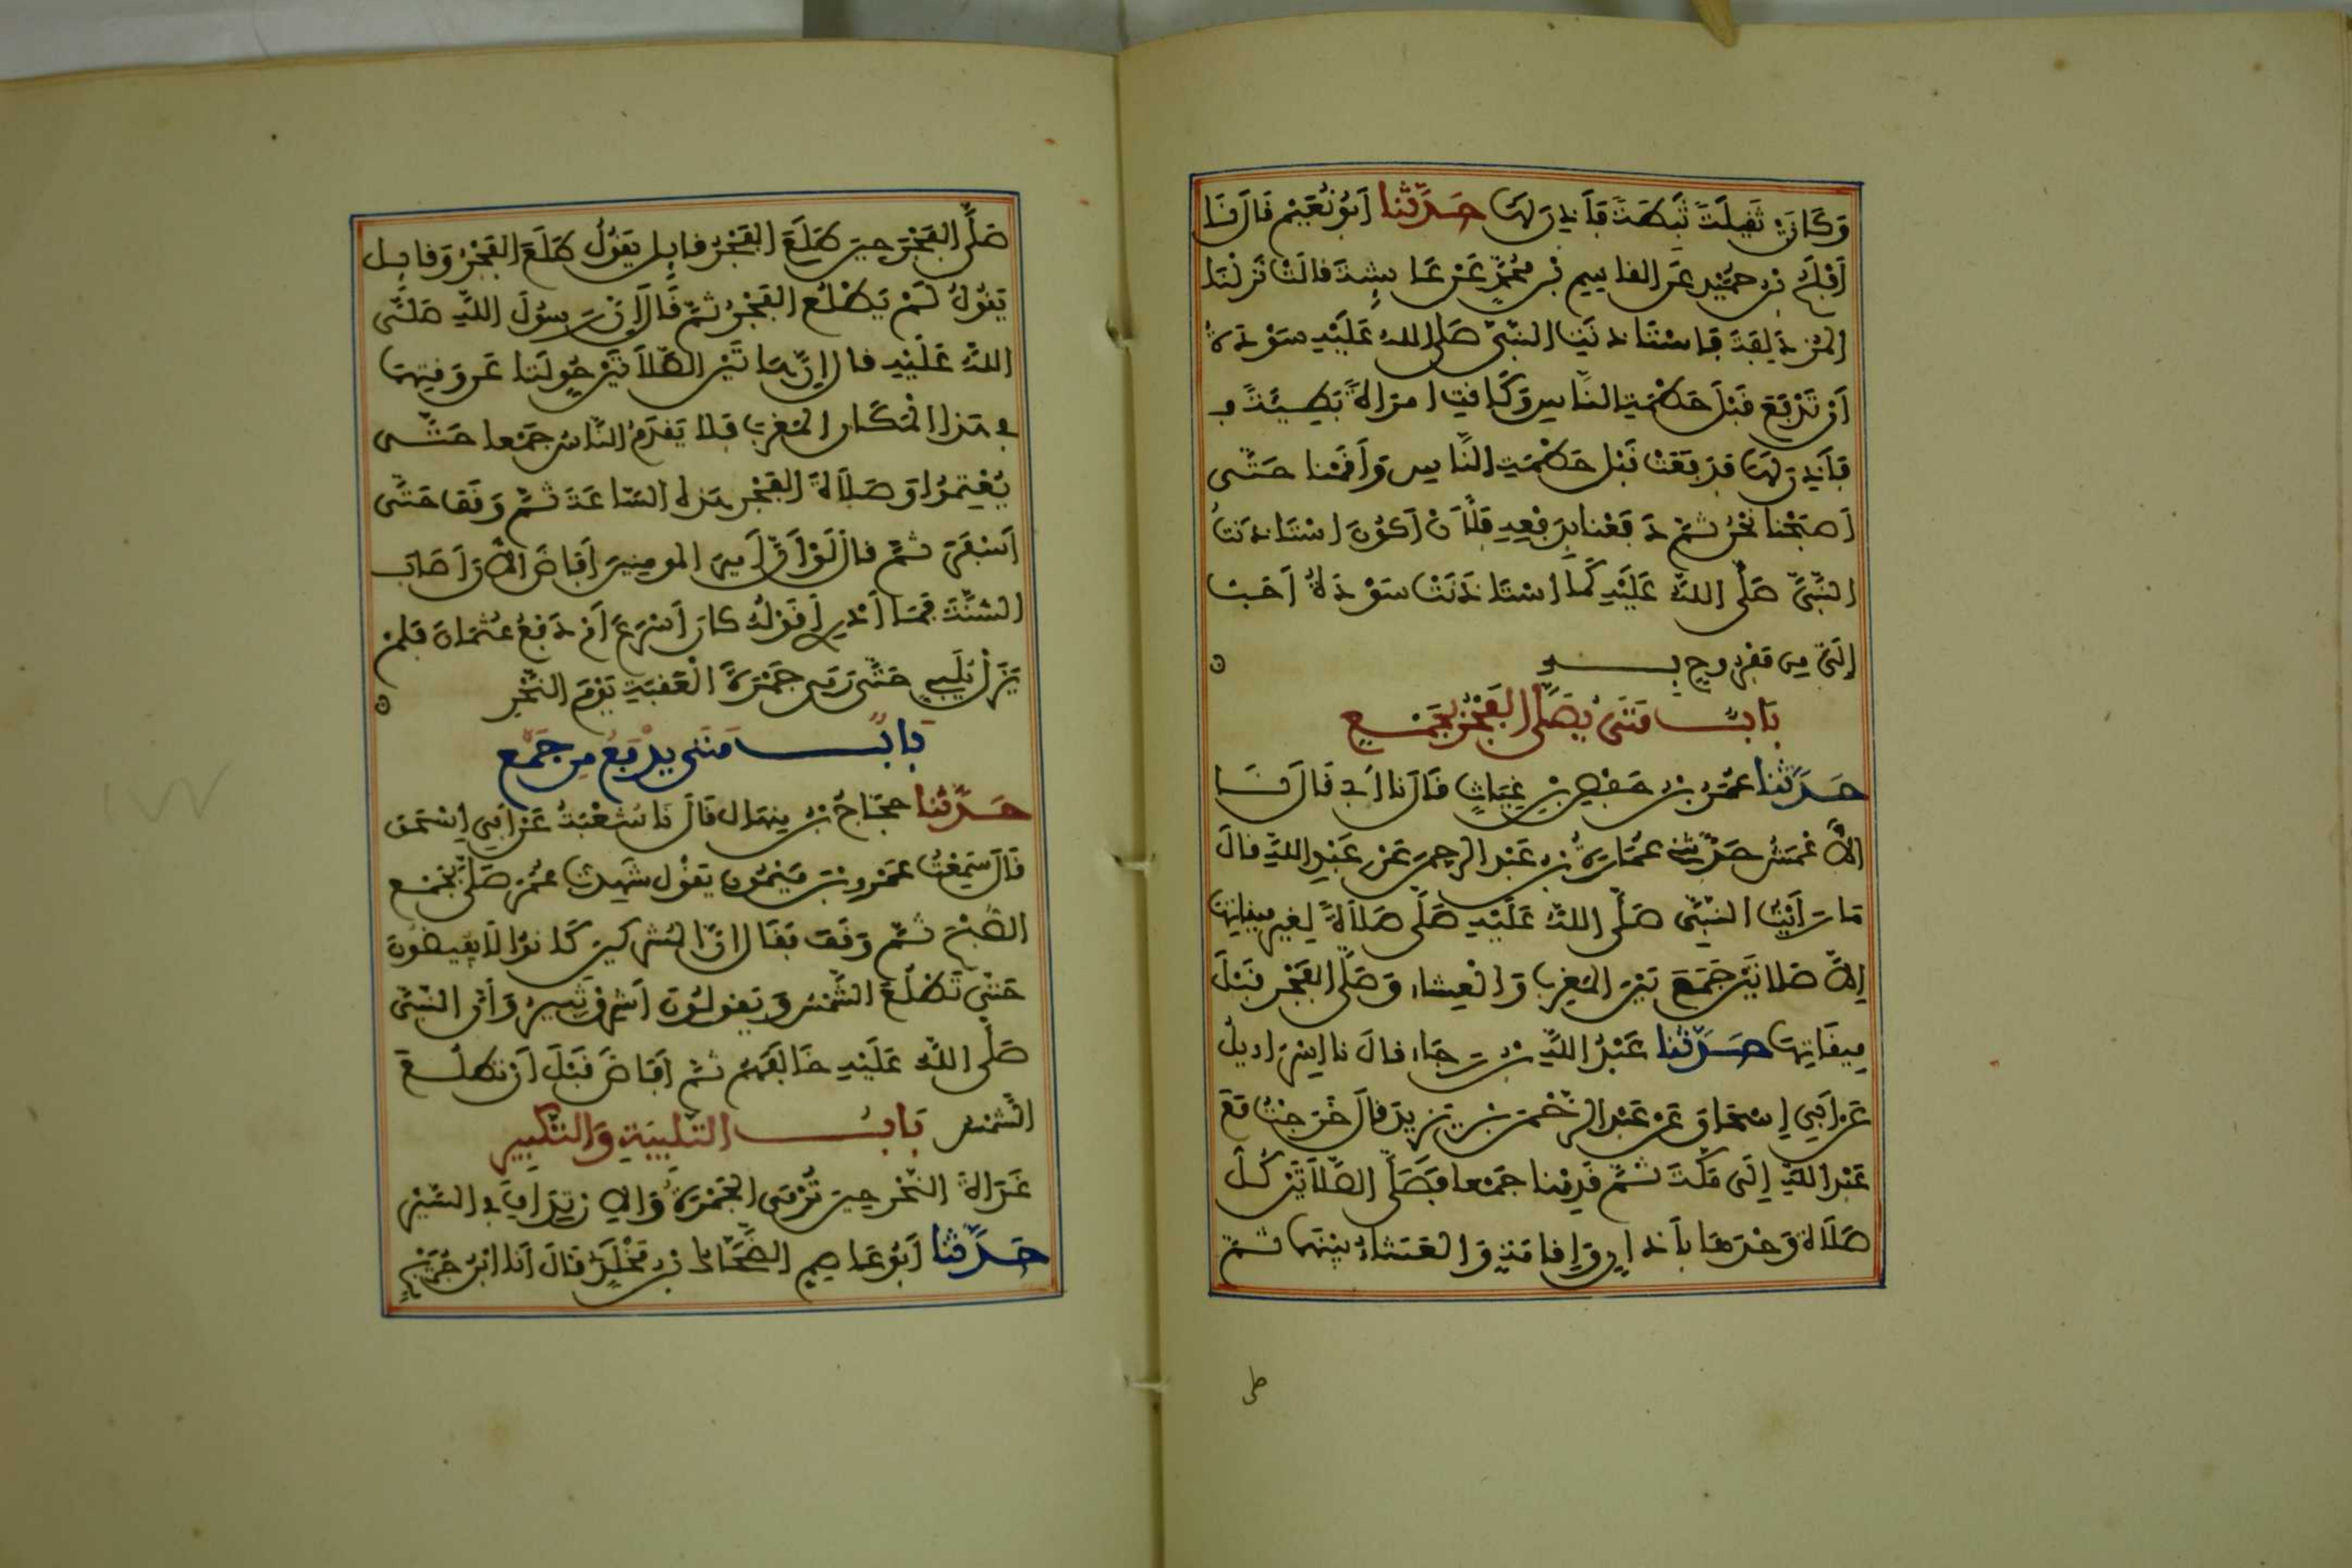 وَكَانَتْ ثَقِيلَةً ثَبِطَةً فَأَذِنَ لَهَا حَدَّثَنَا أَبُو نُعَيْمٍ قَالَ نَا
أَفْلَحُ بْنُ حُمَيْدٍ عَنِ الْقَاسِمِ بْنِ مُحَمَّدٍ عَنْ عَائِشَةَ قَالَتْ نَزَلْنَا
الْمُزْدَلِفَةَ فَاسْتَأْذَنَتِ النَّبِيَّ صَلَّى اللهُ عَلَيْهِ سَوْدَةُ
أَنْ تَدْفَعَ قَبْلَ حَطْمَةِ النَّاسِ وَكَانَتِ امْرَأَةً بَطِيئَةً
فَأَذِنَ لَهَا فَدَفَعَتْ قَبْلَ حَطْمَةِ النَّاسِ وَأَقَمْنَا حَتَّى
أَصْبَحْنَا نَحْنُ ثُمَّ دَفَعْنَا بِدَفْعِهِ فَلَأَنْ أَكُونَ اسْتَأْذَنْتُ
النَّبِيَّ صَلَّى اللهُ عَلَيْهِ كَمَا اسْتَأْذَنَتْ سَوْدَةُ أَحَبُّ
إِلَيَّ مِن مَفْرُوحٍ بِهِ
بَابُ مَتَى يُصَلَّى الْفَجْرُ بِجَمْعٍ
حَدَّثَنَا عُمَرُ بْنُ حَفْصِ بْنِ غِيَاثٍ قَالَ نَا أَبِي قَالَ نَا
الْأَعْمَشُ حَدَّثَنِي عُمَارَةُ بْنُ عَبْدِ الرحمن عَنْ عَبْدِ اللَّهِ قَالَ
مَا رَأَيْتُ النَّبِيَّ صَلَّى اللهُ عَلَيْهِ صَلَّى صَلَاةً لِغَيْرِ مِيقَاتِهَا
إِلَّا صَلَاتَيْنِ جَمَعَ بَيْنَ الْمَغْرِبِ وَالْعِشَاءِ وَصَلَّى الْفَجْرَ قَبْلَ
مِيقَاتِهَا حَدَّثَنَا عَبْدُ اللَّهِ بْنُ رَجَاءٍ قَالَ نَا إِسْرَائِيلُ
عَنْ أَبِي إِسْحَاقَ عَنْ عَبْدِ الرَّحْمَنِ بْنِ يَزِيدَ قَالَ خَرَجْتُ مَعَ
عَبْدِ اللَّهِ إِلَى مَكَّةَ ثُمَّ قَدِمْنَا جَمْعًا فَصَلَّى الصَّلَاتَيْنِ كُلَّ
صَلَاةٍ وَحْدَهَا بِأَذَانٍ وَإِقَامَةٍ وَالْعَشَاءُ بَيْنَهُمَا ثُمَّ
صَلَّى الْفَجْرَ حِينَ طَلَعَ الْفَجْرُ قَائِلٌ يَقُولُ طَلَعَ الْفَجْرُ وَقَائِلٌ
يَقُولُ لَمْ يَطْلُعِ الْفَجْرُ ثُمَّ قَالَ إِنَّ رَسُولَ اللَّهِ صَلَّى
اللهُ عَلَيْهِ قَالَ إِنَّ هَاتَيْنِ الصَّلَاتَيْنِ حُوِّلَتَا عَن وَقْتِهِمَا
فِي هَذَا الْمَكَانِ الْمَغْرِبَ فَلَا يَقْدَمُ النَّاسُ جَمْعًا حَتَّى
يُعْتِمُوا وَصَلَاةَ الْفَجْرِ هَذِهِ السَّاعَةَ ثُمَّ وَقَفَ حَتَّى
أَسْفَرَ ثُمَّ قَالَ لَوْ أَنَّ أَمِيرَ الْمُومِنِينَ أَفَاضَ الْآنَ أَصَابَ
السُّنَّةَ فَمَا أَدْرِي أَقَوْلُهُ كَانَ أَسْرَعَ أَمْ دَفْعُ عُثْمَانَ فَلَمْ
يَزَلْ يُلَبِّي حَتَّى رَمَى جَمْرَةَ الْعَقَبَةِ يَوْمَ النَّحْرِ
بَابُ مَتَى يدْفَعُ مِن جَمْعٍ
حَدَّثَنَا حَجَّاجُ بْنُ مِنْهَالٍ قَالَ نَا شُعْبَةُ عَنْ أَبِي إِسْحَقَ
قَالَ سَمِعْتُ عَمْرَو بْنَ مَيْمُونٍ يَقُولُ شَهِدْتُ عُمَرَ صَلَّى بِجَمْعٍ
الصُّبْحَ ثُمَّ وَقَفَ فَقَالَ إِنَّ الْمُشْرِكِينَ كَانُوا لَا يُفِيضُونَ
حَتَّى تَطْلُعَ الشَّمْسُ وَيَقُولُونَ أَشْرِقْ ثَبِيرُ وَأَنَّ النَّبِيَّ
صَلَّى اللهُ عَلَيْهِ خَالَفَهُمْ ثُمَّ أَفَاضَ قَبْلَ أَنْ تَطْلُعَ
الشَّمْسُ بَابُ التَّلْبِيَةِ وَالتَّكْبِيرِ
غَدَاةَ النَّحْرِ حِينَ تُرْمَى الْجَمْرَةُ وَالِارْتِدَافِ فِي السَّيْرِ
حَدَّثَنَا أَبُو عَاصِمٍ الضَّحَّاكُ بْنُ مَخْلَدٍ قَالَ أَنَا ابْنُ جُرَيْجٍ